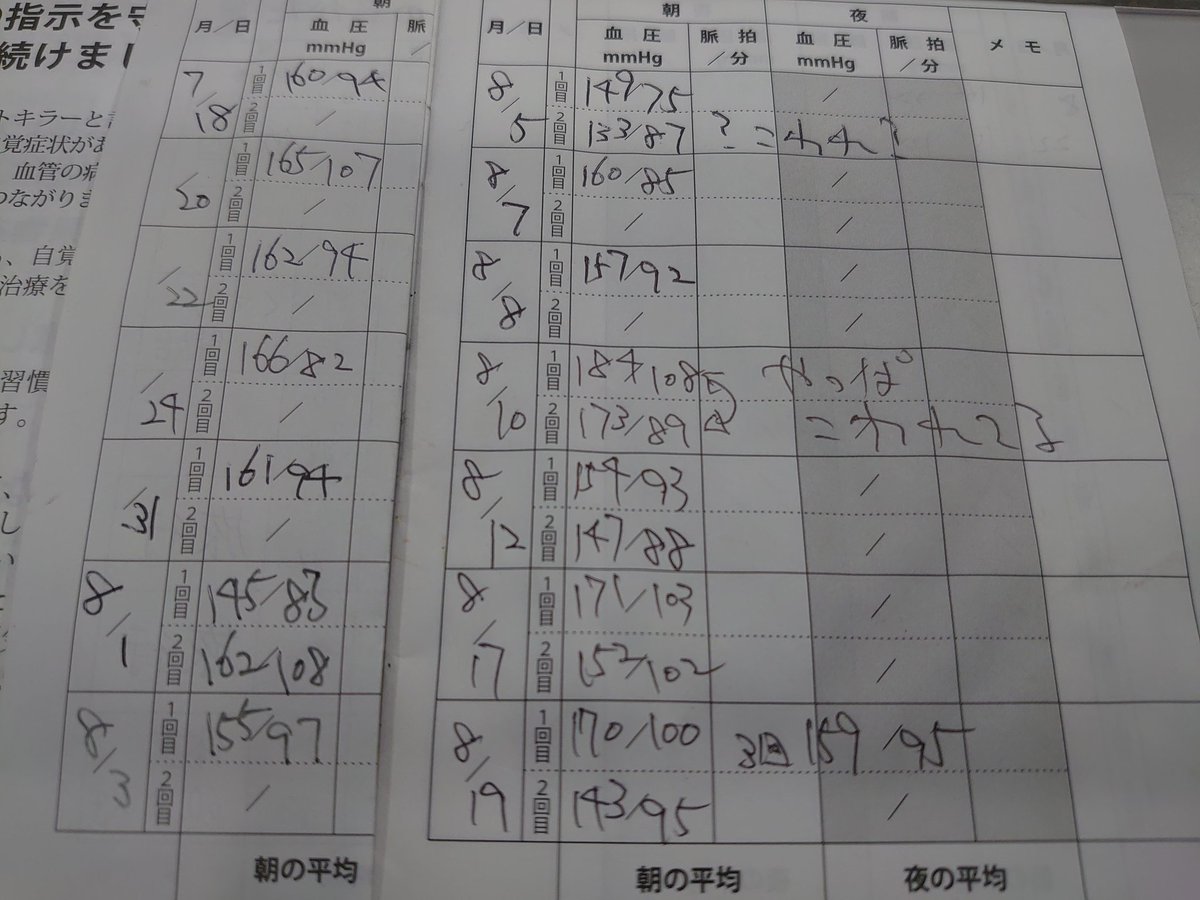 の指示を守
続けまし
トキラーと言
覚症状があ
血管の病
つながりま
、自覚
治療を
習慣
す。
し
い
朝
月/日
血圧
mmHg
脈
/
7/18
1回目 160/94
2回目 /
/20
1回目 165/107
2回目 /
/22
1回目 162/94
2回目 /
/24
1回目 166/82
2回目 /
/31
1回目 161/94
2回目 /
8/1
1回目 145/83
2回目 162/108
8/3
1回目 155/97
2回目 /
朝の平均
朝 夜
月/日
血圧 mmHg
脈拍 /分
血圧 mmHg
脈拍 /分
メモ
8/5
1回目 149/75 /
2回目 133/87 ?こわれ?
8/7
1回目 160/85 /
2回目 / /
8/8
1回目 157/92 /
2回目 / /
8/10
1回目 184/108 やっぱ
2回目 173/89 こわれてる
8/12
1回目 154/93 /
2回目 147/88 /
8/17
1回目 171/103 /
2回目 152/102 /
8/19
1回目 170/100 3回 159/95
2回目 143/95 /
朝の平均
夜の平均